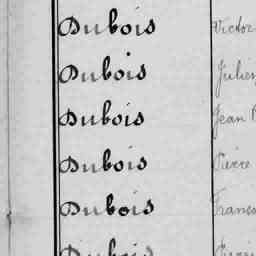 Dubois Victor
Dubois Julien
Dubois Jean
Dubois Pierre
Dubois
Dubois